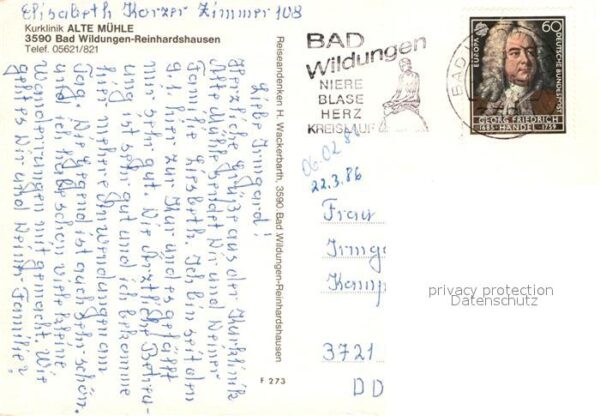 Elisabeth Korzer Zimmer 108
Kurklinik ALTE MÜHLE
3590 Bad Wildungen-Reinhardshausen
Telef. 05621/821
Liebe Irmgard!
Herzliche Grüße aus der Kurklinik
Alte Mühle sendet Dir und Deiner
Familie Elisbeth. Ich bin seit den
9.1. hier zur Kur und es gefällt
mir sehr gut. Die Ärztliche Betreu-
ung ist sehr gut und ich bekomme
immer mehrere Anwendungen am
Tag. Die Gegend ist auch sehr schön.
und ich habe schon viele kleine
Wanderungen mit gemacht. Wie
geht es Dir und Deiner Familie?
Reiseandenken H. Wackerbarth, 3590 Bad Wildungen-Reinhardshausen
F 273
BAD
Wildungen
NIERE
BLASE
HERZ
KREISLAUF
BAD
EUROPA
60
DEUTSCHE BUNDESPOST
GEORG FRIEDRICH
1685 HÄNDEL 1759
06.02.86
22.3.86
Frau
Irmga
Kamp
privacy protection
Datenschutz
3721
DD